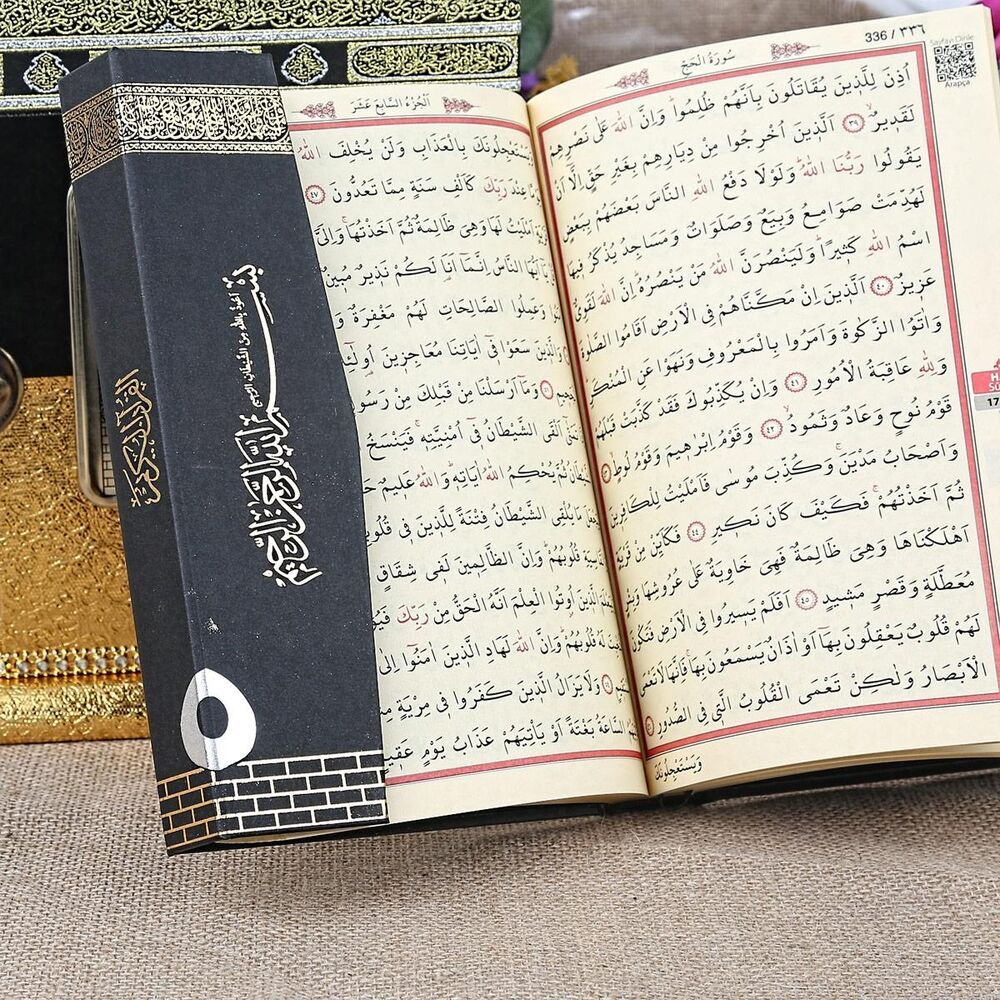 336 / ٣٣٦
سُورَةُ الْحَجِّ
Sayfayı Dinle
Arapça
اُذِنَ لِلَّذ۪ينَ يُقَاتَلُونَ بِاَنَّهُمْ ظُلِمُواۜ وَاِنَّ اللّٰهَ عَلٰى نَصْرِهِمْ
لَقَد۪يرٌۙ ٣٩ اَلَّذ۪ينَ اُخْرِجُوا مِنْ دِيَارِهِمْ بِغَيْرِ حَقٍّ اِلَّٓا اَنْ
يَقُولُوا رَبُّنَا اللّٰهُۜ وَلَوْلَا دَفْعُ اللّٰهِ النَّاسَ بَعْضَهُمْ بِبَعْضٍ
لَهُدِّمَتْ صَوَامِعُ وَبِيَعٌ وَصَلَوَاتٌ وَمَسَاجِدُ يُذْكَرُ ف۪يهَا
اسْمُ اللّٰهِ كَث۪يرًاۜ وَلَيَنْصُرَنَّ اللّٰهُ مَنْ يَنْصُرُهُۜ اِنَّ اللّٰهَ لَقَوِيٌّ
عَز۪يزٌ ٤٠ اَلَّذ۪ينَ اِنْ مَكَّنَّاهُمْ فِي الْاَرْضِ اَقَامُوا الصَّلٰوةَ
وَاٰتَوُا الزَّكٰوةَ وَاَمَرُوا بِالْمَعْرُوفِ وَنَهَوْا عَنِ الْمُنْكَرِۜ
وَلِلّٰهِ عَاقِبَةُ الْاُمُورِ ٤١ وَاِنْ يُكَذِّبُوكَ فَقَدْ كَذَّبَتْ قَبْلَهُمْ
قَوْمُ نُوحٍ وَعَادٌ وَثَمُودُۙ ٤٢ وَقَوْمُ اِبْرٰه۪يمَ وَقَوْمُ لُوطٍۙ ٤٣
وَاَصْحَابُ مَدْيَنَۚ وَكُذِّبَ مُوسٰى فَاَمْلَيْتُ لِلْكَافِر۪ينَ
ثُمَّ اَخَذْتُهُمْۚ فَكَيْفَ كَانَ نَك۪يرِ ٤٤ فَكَاَيِّنْ مِنْ قَرْيَةٍ
اَهْلَكْنَاهَا وَهِيَ ظَالِمَةٌ فَهِيَ خَاوِيَةٌ عَلٰى عُرُوشِهَا وَبِئْرٍ
مُعَطَّلَةٍ وَقَصْرٍ مَش۪يدٍ ٤٥ اَفَلَمْ يَس۪يرُوا فِي الْاَرْضِ فَتَكُونَ
لَهُمْ قُلُوبٌ يَعْقِلُونَ بِهَٓا اَوْ اٰذَانٌ يَسْمَعُونَ بِهَاۚ فَاِنَّهَا لَا تَعْمَى
الْاَبْصَارُ وَلٰكِنْ تَعْمَى الْقُلُوبُ الَّت۪ي فِي الصُّدُورِ ٤٦
وَيَسْتَعْجِلُونَكَ
17
اَلْجُزْءُ السَّابِعُ عَشَرَ
وَيَسْتَعْجِلُونَكَ بِالْعَذَابِ وَلَنْ يُخْلِفَ اللّٰهُ
عِنْدَ رَبِّكَ كَاَلْفِ سَنَةٍ مِمَّا تَعُدُّونَ ٤٧
اَمْلَيْتُ لَهَا وَهِيَ ظَالِمَةٌ ثُمَّ اَخَذْتُهَاۚ وَاِلَيَّ
النَّاسُ اِنَّمَٓا اَنَا۬ لَكُمْ نَذ۪يرٌ مُب۪ينٌۚ
وَعَمِلُوا الصَّالِحَاتِ لَهُمْ مَغْفِرَةٌ وَ
وَالَّذ۪ينَ سَعَوْا ف۪ٓي اٰيَاتِنَا مُعَاجِز۪ينَ اُو۬لٰٓئِكَ
وَمَٓا اَرْسَلْنَا مِنْ قَبْلِكَ مِنْ رَسُولٍ
اَلْقَى الشَّيْطَانُ ف۪ٓي اُمْنِيَّتِه۪ۚ فَيَنْسَخُ
يُحْكِمُ اللّٰهُ اٰيَاتِه۪ۜ وَاللّٰهُ عَل۪يمٌ
مَا يُلْقِي الشَّيْطَانُ فِتْنَةً لِلَّذ۪ينَ ف۪ي قُلُوبِ
قُلُوبُهُمْۜ وَاِنَّ الظَّالِم۪ينَ لَف۪ي شِقَاقٍ
الَّذ۪ينَ اُو۫تُوا الْعِلْمَ اَنَّهُ الْحَقُّ مِنْ رَبِّكَ
لَهُ قُلُوبُهُمْۜ وَاِنَّ اللّٰهَ لَهَادِ الَّذ۪ينَ اٰمَنُٓوا اِلٰى
وَلَا يَزَالُ الَّذ۪ينَ كَفَرُوا ف۪ي مِرْيَةٍ
السَّاعَةُ بَغْتَةً اَوْ يَأْتِيَهُمْ عَذَابُ يَوْمٍ عَق۪يمٍ
اعوذ بالله من الشيطان الرجيم
بسم الله الرحمن الرحيم
القرآن الكريم